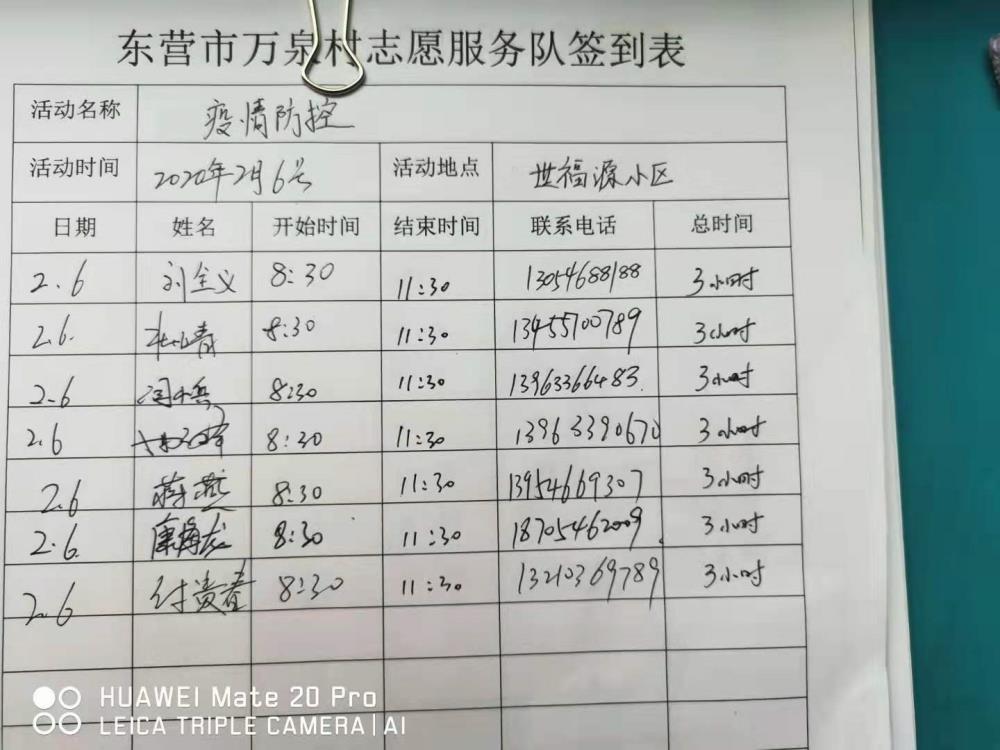 东营市万泉村志愿服务队签到表
活动名称 疫情防控
活动时间 2020年2月6号 活动地点 世福源小区
日期 姓名 开始时间 结束时间 联系电话 总时间
2.6 刘全义 8:30 11:30 13054688188 3小时
2.6. 8:30 11:30 13455700789 3小时
2.6 8:30 11:30 13963366483. 3小时
2.6 8:30 11:30 13963390670 3小时
2.6 蒋燕 8:30 11:30 13954669307 3小时
2.6. 8:30 11:30 18705462009. 3小时
2.6 付贵春 8:30 11:30 13210369789 3小时
HUAWEI Mate 20 Pro
LEICA TRIPLE CAMERA | AI